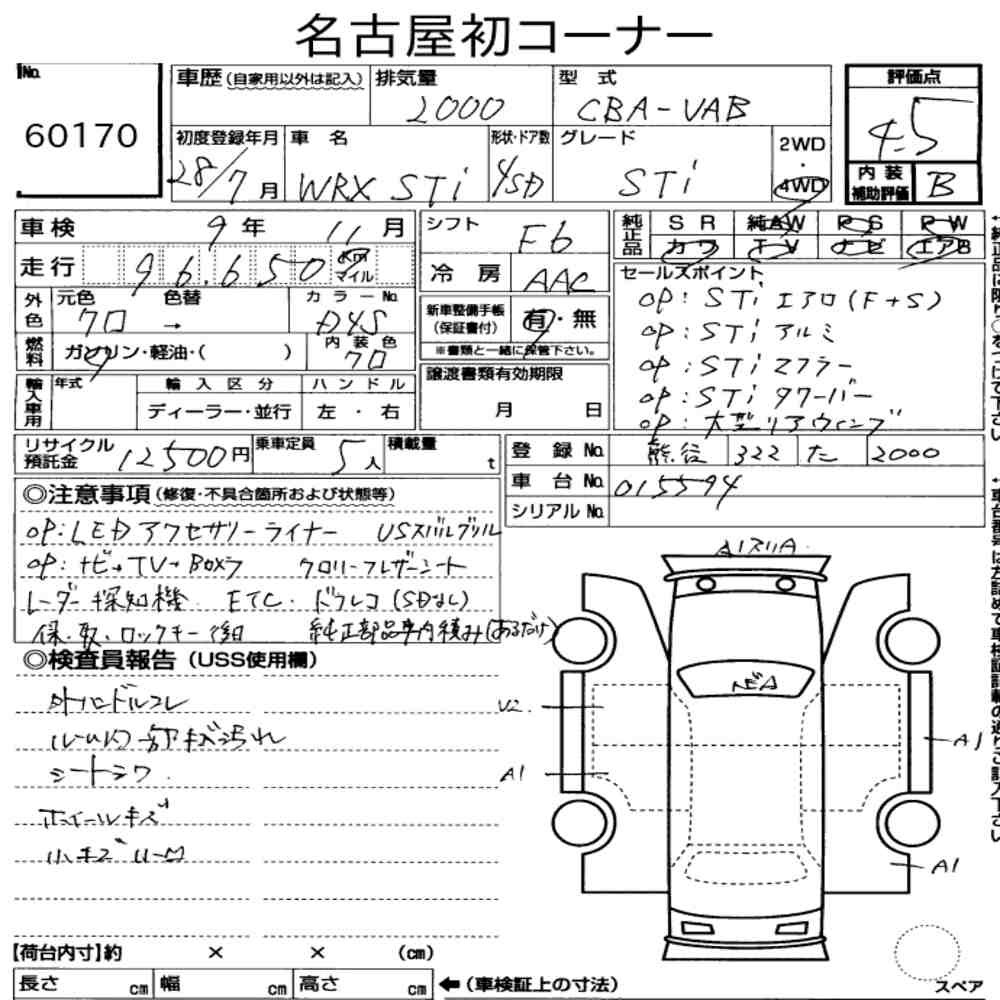 名古屋初コーナー
No. 60170
車歴(自家用以外は記入)
排気量 2000
型 式 CBA-VAB
評価点 4.5
初度登録年月 28/7月
車 名 WRX STi
形状・ドア数 4SD
グレード STi
2WD・4WD
内装補助評価 B
車検 9年 11月
シフト F6
純正品 SR 純AW PS PW
カワ TV ナビ エアB
走行 96,650 Km マイル
冷房 AAC
セールスポイント
OP:STi エアロ(F+S)
OP:STi アルミ
OP:STi マフラー
OP:STi タワーバー
OP:大型リアウィング
外色 元色 クロ → 色替 カラーNo. D4S
新車整備手帳(保証書付) 有・無
※書類と一緒に保管下さい。
燃料 ガソリン・軽油・( ) 内装色 クロ
輸入車用 年式 輸入区分 ハンドル
ディーラー・並行 左・右
譲渡書類有効期限
月 日
リサイクル預託金 12500円
乗車定員 5人
積載量 t
登録No. 熊谷 322 た 2000
車台No. 015594
シリアルNo.
◎注意事項(修復・不具合箇所および状態等)
OP:LEDアクセサリーライナー USスバルグリル
OP:ナビ→TV→BOXラ クロリーフレザーシート
レーダー探知機 ETC ドラレコ(SDなし)
保・取・ロックキー後日 純正部品車内積み(あるだけ)
◎検査員報告(USS使用欄)
外ハンドルコレ
ルーム内一部キズ汚れ
シートシワ
ホイールキズ
小キズ
U2
A1
A1
A1
【荷台内寸】約 × × (cm)
長さ cm 幅 cm 高さ cm
←(車検証上の寸法)
スペア